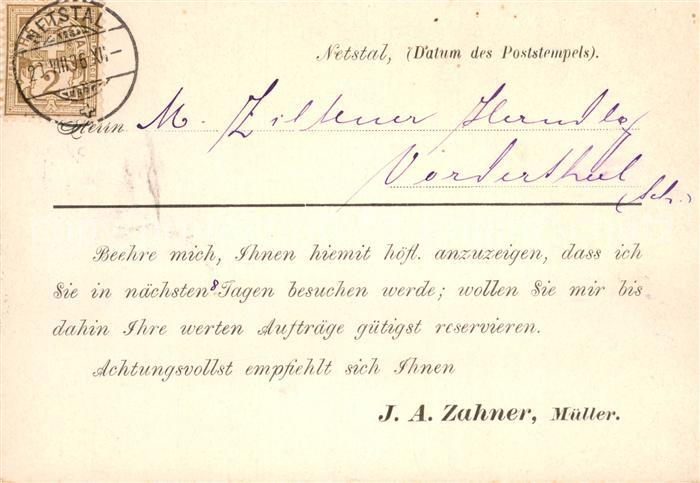 NETSTAL
2
Netstal, (Datum des Poststempels).
Herrn M. Ziltener Handlg
Vorderthal
(Sch.)
Beehre mich, Ihnen hiemit höfl. anzuzeigen, dass ich
Sie in nächsten 8 Tagen besuchen werde; wollen Sie mir bis
dahin Ihre werten Aufträge gütigst reservieren.
Achtungsvollst empfiehlt sich Ihnen
J. A. Zahner, Müller.